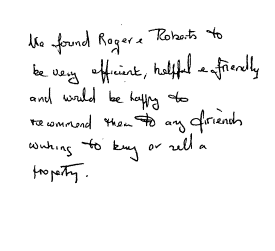 We found Roger & Roberts to
be very efficient, helpful & friendly
and would be happy to
recommend them to any friends
wishing to buy or sell a
property.